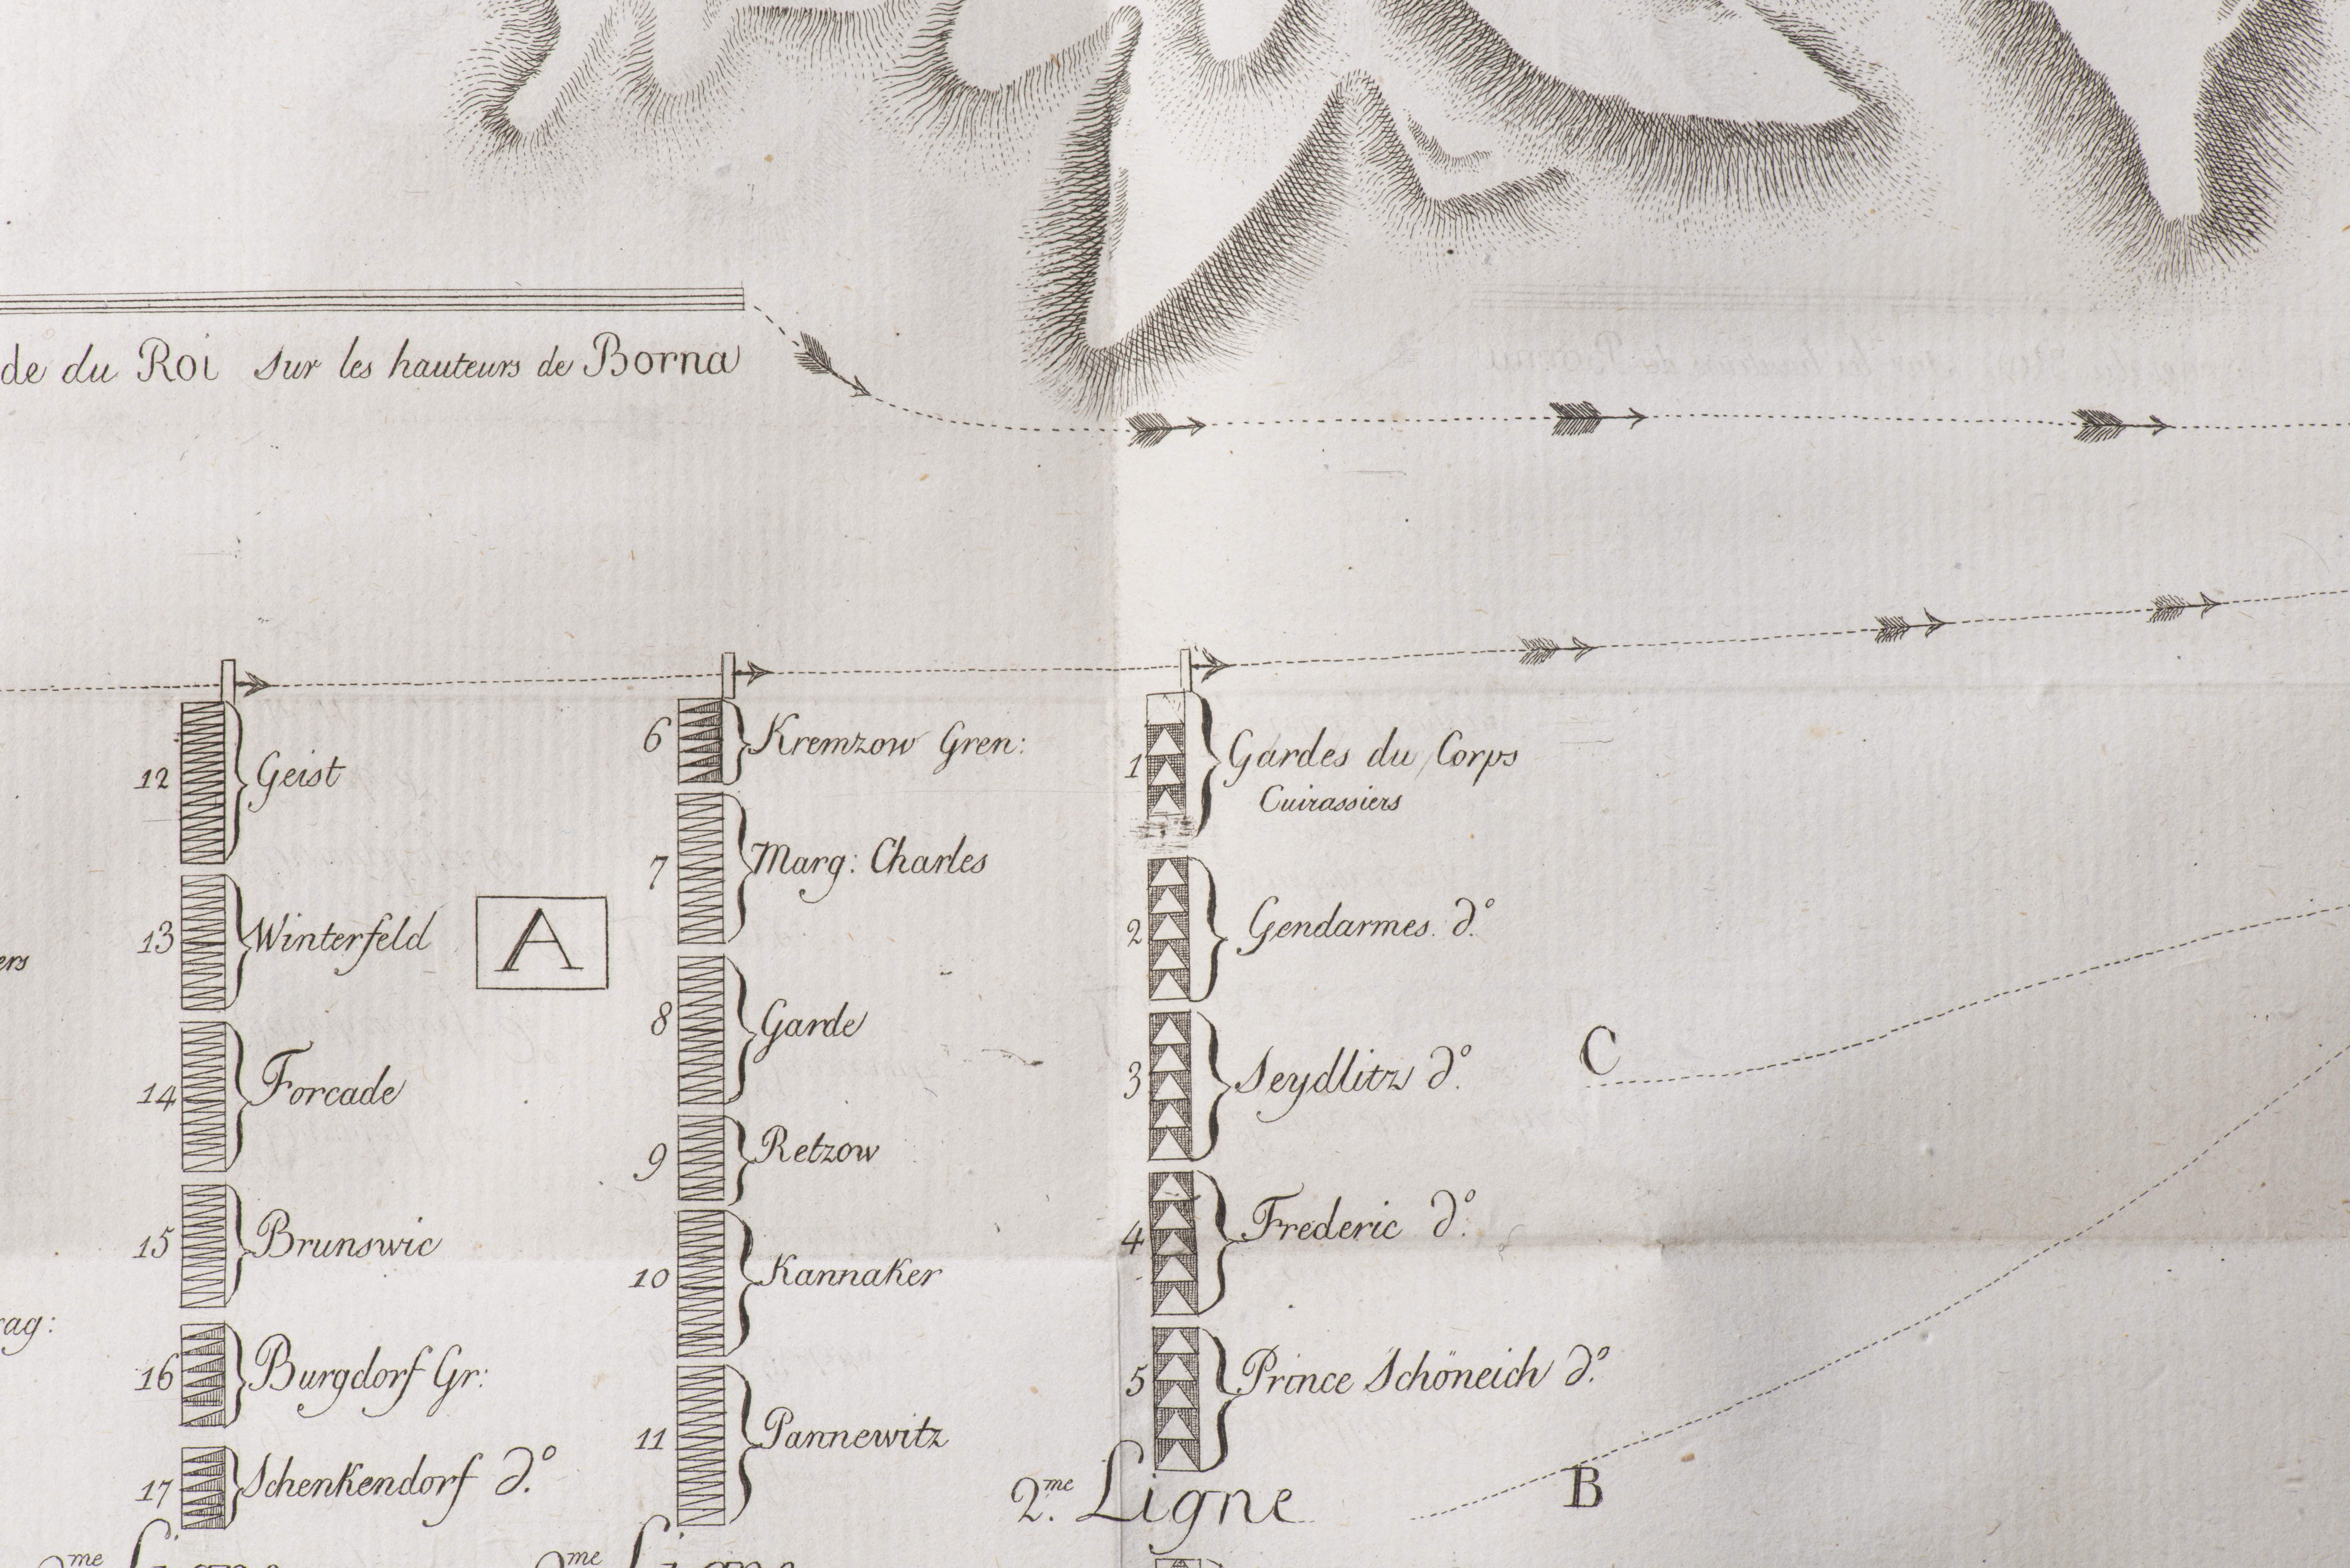 de du Roi sur les hauteurs de Borna
12 Geist
13 Winterfeld
14 Forcade
15 Brunswic
16 Burgdorf Gr:
17 Schenkendorf d.º
A
6 Kremzow Gren:
7 Marg: Charles
8 Garde
9 Retzow
10 Kannaker
11 Pannewitz
1 Gardes du Corps
Cuirassiers
2 Gendarmes. d.º
3 Seydlitz d.º
4 Frederic d.º
5 Prince Schöneich d.º
2.me Ligne
C
B
ers
rag: